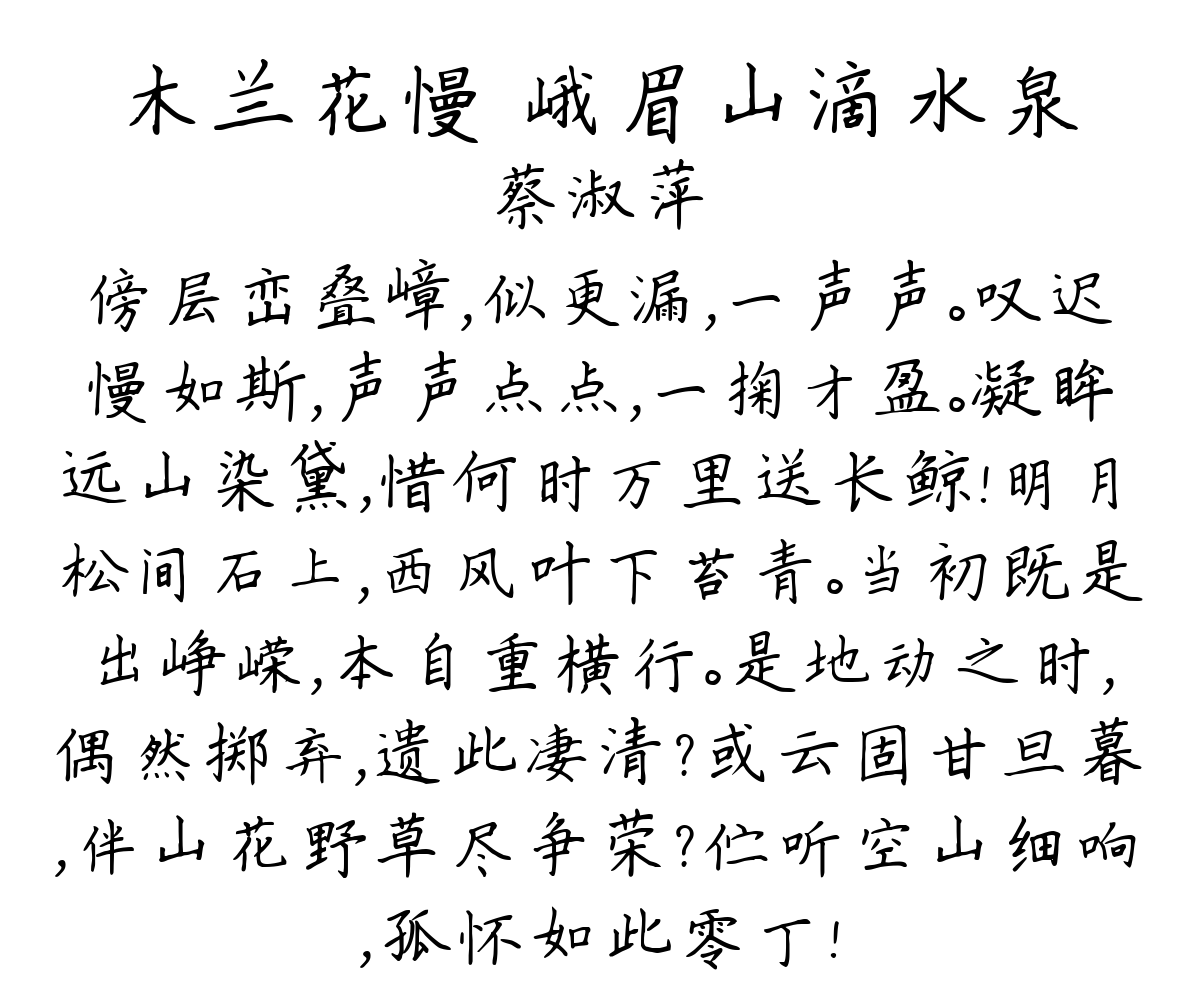 木兰花慢 峨眉山滴水泉
蔡淑萍
傍层峦叠嶂,似更漏,一声声。叹迟
慢如斯,声声点点,一掬才盈。凝眸
远山染黛,惜何时万里送长鲸!明月
松间石上,西风叶下苔青。当初既是
出峥嵘,本自重横行。是地动之时,
偶然掷弃,遗此凄清?或云固甘旦暮
,伴山花野草尽争荣?伫听空山细响
,孤怀如此零丁!